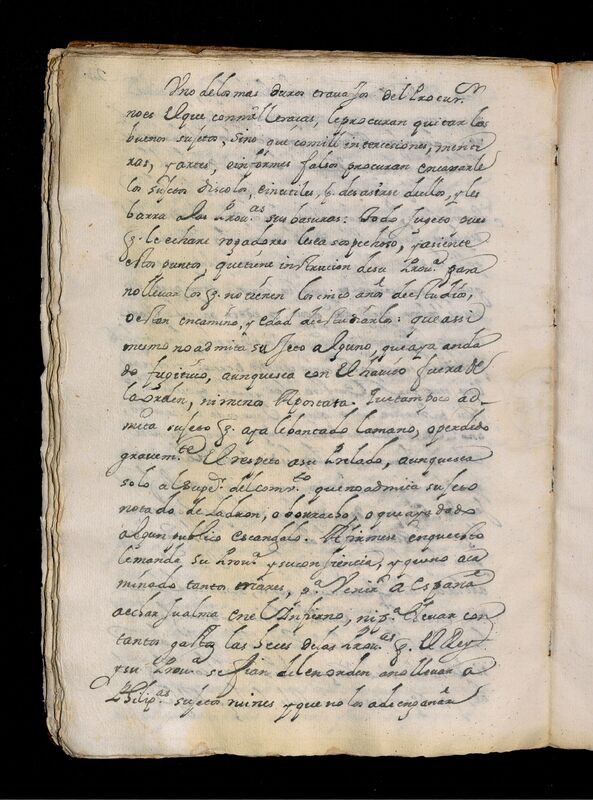 Uno de los mas duros travajos del Procur.
no es el que con mill trazas, le procuran quitar los
buenos sujetos, sino que con mill intercesiones, menti
ras, y artes, e informes falsos procuran encajarle
los sujetos discolos, e inutiles, q. desastrse dellos, y les
barra a las Prou.as sus basuras: Todo sugeto pues
q. le echare rogadores le sea sospechoso, y asiente
estos puntos que tiene instrucion de su Prou.a para
no llevar los q. no tienen los cinco años de estudio,
o estan en camino, y edad de estudiarlos: que assi
mismo no admita sujeto alguno, que aya anda
do fugitivo, aunque sea con el havito fuera de
la orden, ni menos Apostata. Que tampoco ad-
mita sujeto q. aya lebantado la mano, o perdido
gravem.te el respeto a su Prelado, aunque sea
solo al Sup.r del com.to que no admita sujeto
notado de Ladron, o borracho, o que aya dado
algun publico escandalo. Afirmese en que esto
le manda su Prou.a y su conciencia, y que no a ca
minado tantos mares, p.a Venir a España
a echar su alma en el Infierno, ni p.a llevar con
tantos gastos las heces de las Prou.as q. el Rey
y su Prou.a se fian del en orden a no llevar a
Philip.as sujetos ruines y que no los a de engañar